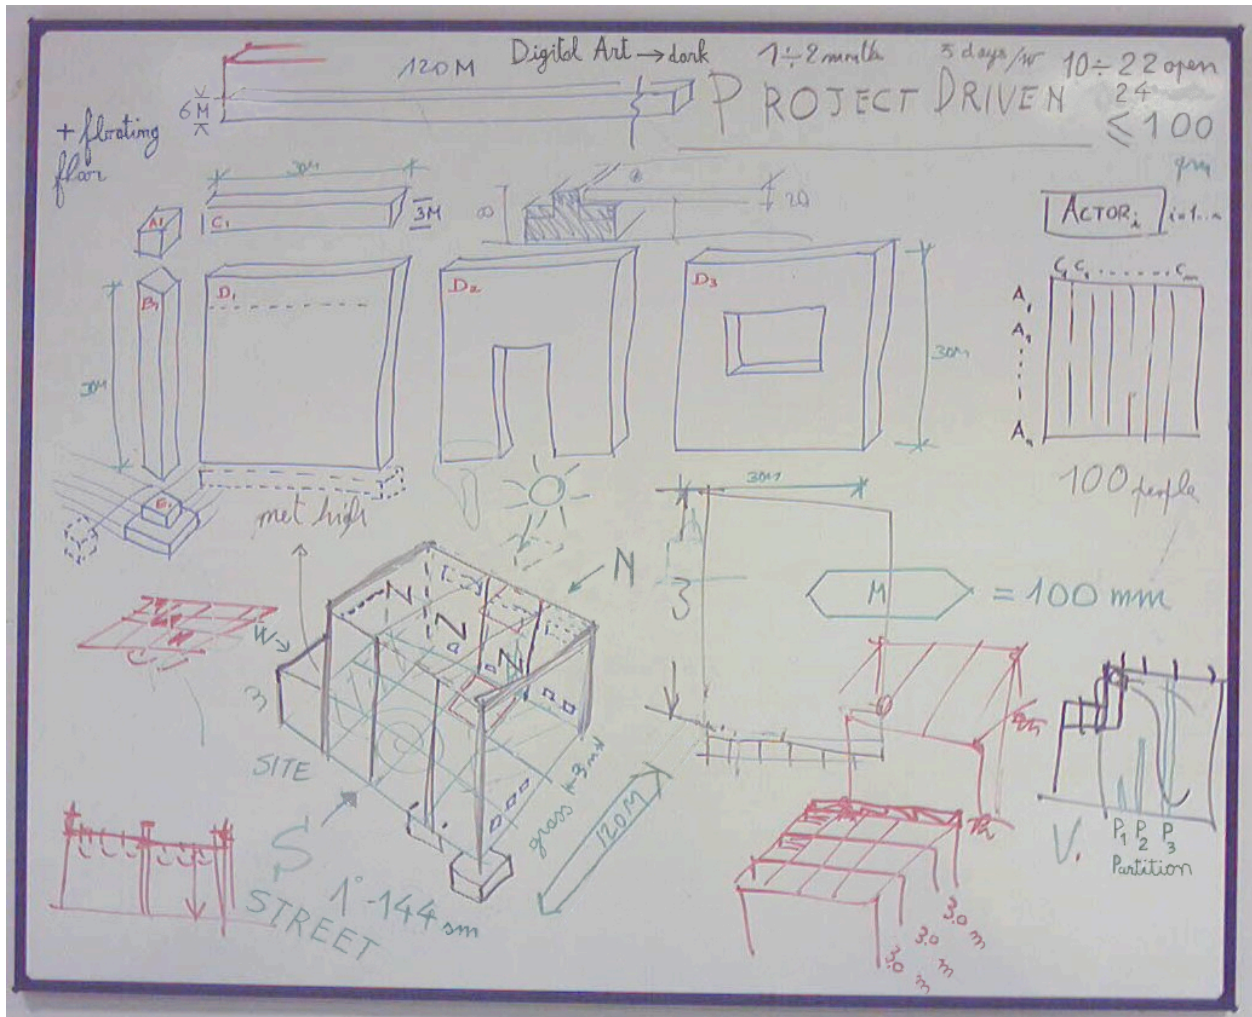 Digital Art → dark
1 ÷ 2 months
5 days/w
10 ÷ 22 open
24
≤ 100
PROJECT DRIVEN
120M
6M
+ floating
floor
30M
A1
C1
3M
8
20
ACTOR i
i=1...n
B1
D1
D2
D3
30M
30M
C1 C2 ....... Cm
A1
A2
An
100 people
E1
met high
30M
N
3
M
= 100 mm
W
3
SITE
S
STREET
1° - 144 sm
grass
3m
120M
3.0 m
3.0 m
3.0 m
V.
P1 P2 P3
Partition